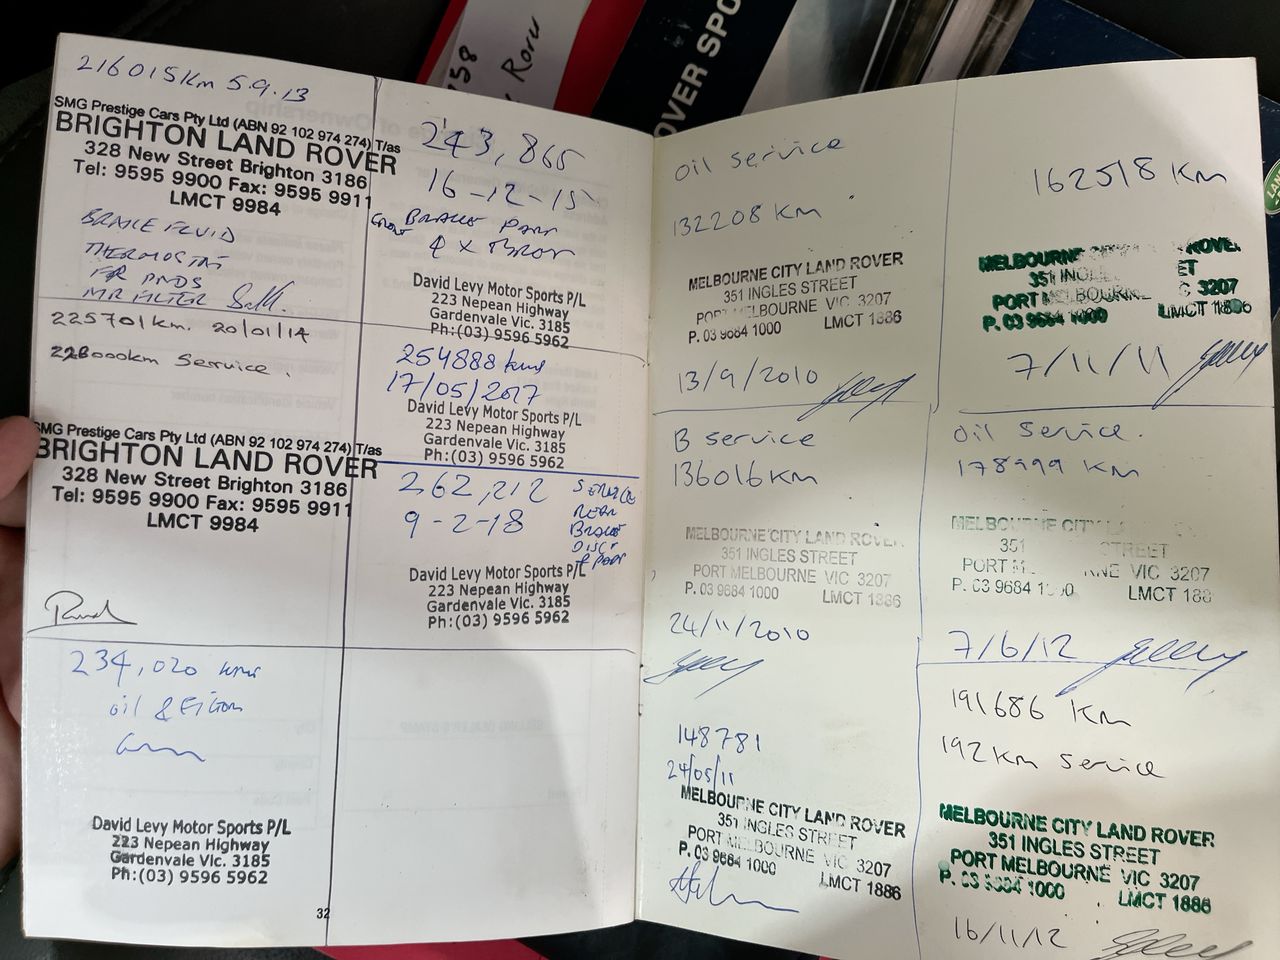 216015Km 5.9.13
SMG Prestige Cars Pty Ltd (ABN 92 102 974 274) T/as
BRIGHTON LAND ROVER
328 New Street Brighton 3186
Tel: 9595 9900 Fax: 9595 9911
LMCT 9984
BRAKE FLUID
THERMOSTAT
PADS
FILTER
225701km. 20/01/14
228000km Service.
SMG Prestige Cars Pty Ltd (ABN 92 102 974 274) T/as
BRIGHTON LAND ROVER
328 New Street Brighton 3186
Tel: 9595 9900 Fax: 9595 9911
LMCT 9984
234,020 kms
oil &
David Levy Motor Sports P/L
223 Nepean Highway
Gardenvale Vic. 3185
Ph:(03) 9596 5962
32
243,865
16-12-15
BRAKE
David Levy Motor Sports P/L
223 Nepean Highway
Gardenvale Vic. 3185
Ph:(03) 9596 5962
254888 kms
17/05/2017
David Levy Motor Sports P/L
223 Nepean Highway
Gardenvale Vic. 3185
Ph:(03) 9596 5962
262,212 SERVICE
9-2-18 REAR
BRAKE
DISC
David Levy Motor Sports P/L
223 Nepean Highway
Gardenvale Vic. 3185
Ph:(03) 9596 5962
oil service
132208 KM
MELBOURNE CITY LAND ROVER
351 INGLES STREET
PORT MELBOURNE VIC 3207
P. 03 9684 1000 LMCT 1886
13/9/2010
B service
136016KM
MELBOURNE CITY LAND ROVER
351 INGLES STREET
PORT MELBOURNE VIC 3207
P. 03 9684 1000 LMCT 1886
24/11/2010
148781
24/05/11
MELBOURNE CITY LAND ROVER
351 INGLES STREET
PORT MELBOURNE VIC 3207
P. 03 9684 1000 LMCT 1886
162518 KM
MELBOURNE CITY LAND ROVER
351 INGLES STREET
PORT MELBOURNE VIC 3207
P. 03 9684 1000 LMCT 1886
7/11/11
oil service.
178999 KM
MELBOURNE CITY
351 STREET
PORT MELBOURNE VIC 3207
P. 03 9684 1000 LMCT 188
7/6/12
191686 KM
192KM service
MELBOURNE CITY LAND ROVER
351 INGLES STREET
PORT MELBOURNE VIC 3207
P. 03 9684 1000 LMCT 1886
16/11/12
58
Rover
OVER SPO